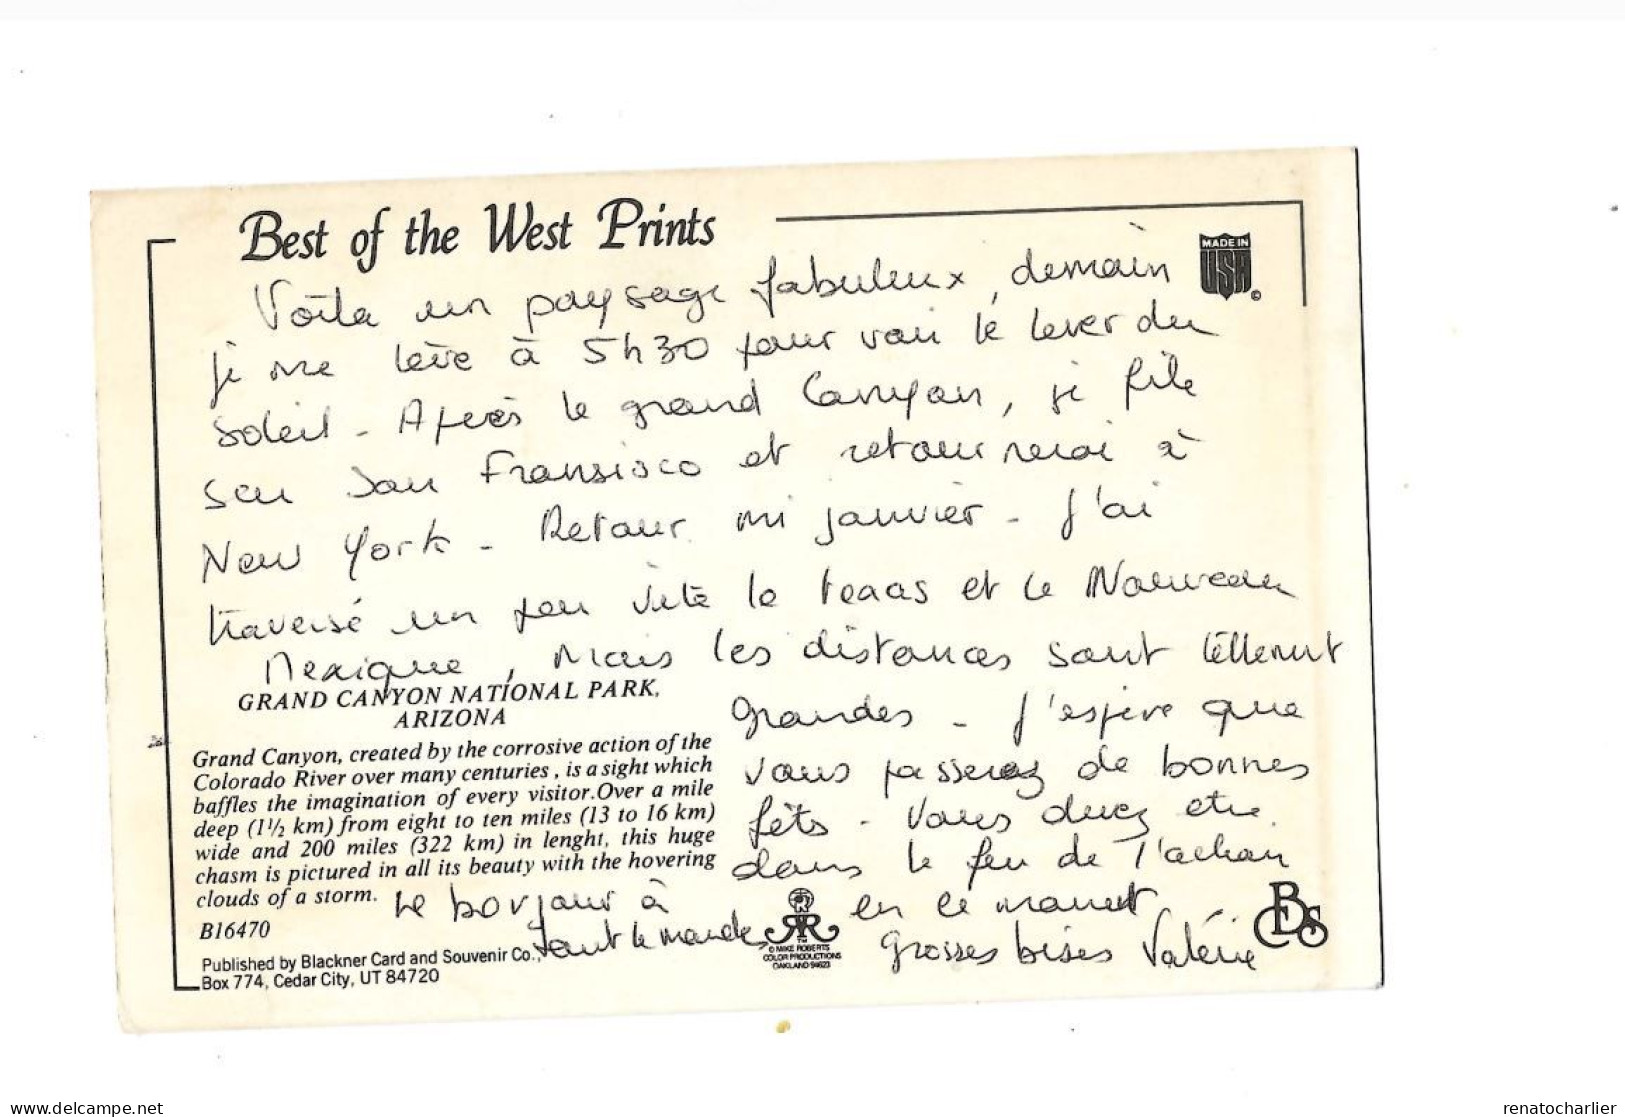 Best of the West Prints
MADE IN
USA
©
Voila un paysage fabuleux, demain
je me lève à 5h30 pour voir le lever du
soleil - Après le grand Canyon, je file
sur San Fransisco et retournerai à
New York - Retour mi janvier - J'ai
traversé un peu vite le Texas et le Nouveau
Mexique, Mais les distances sont tellement
GRAND CANYON NATIONAL PARK,
ARIZONA
Grand Canyon, created by the corrosive action of the
Colorado River over many centuries, is a sight which
baffles the imagination of every visitor. Over a mile
deep (1½ km) from eight to ten miles (13 to 16 km)
wide and 200 miles (322 km) in lenght, this huge
chasm is pictured in all its beauty with the hovering
clouds of a storm.
B16470
Published by Blackner Card and Souvenir Co.,
Box 774, Cedar City, UT 84720
grandes - J'espère que
vous passerez de bonnes
fêts - Vous devez etre
dans le feu de l'action
en ce moment
grosses bises Valérie
Le bonjour à
tout le monde
TM
© MIKE ROBERTS
COLOR PRODUCTIONS
OAKLAND 94623
BCS
www.delcampe.net
renatocharlier